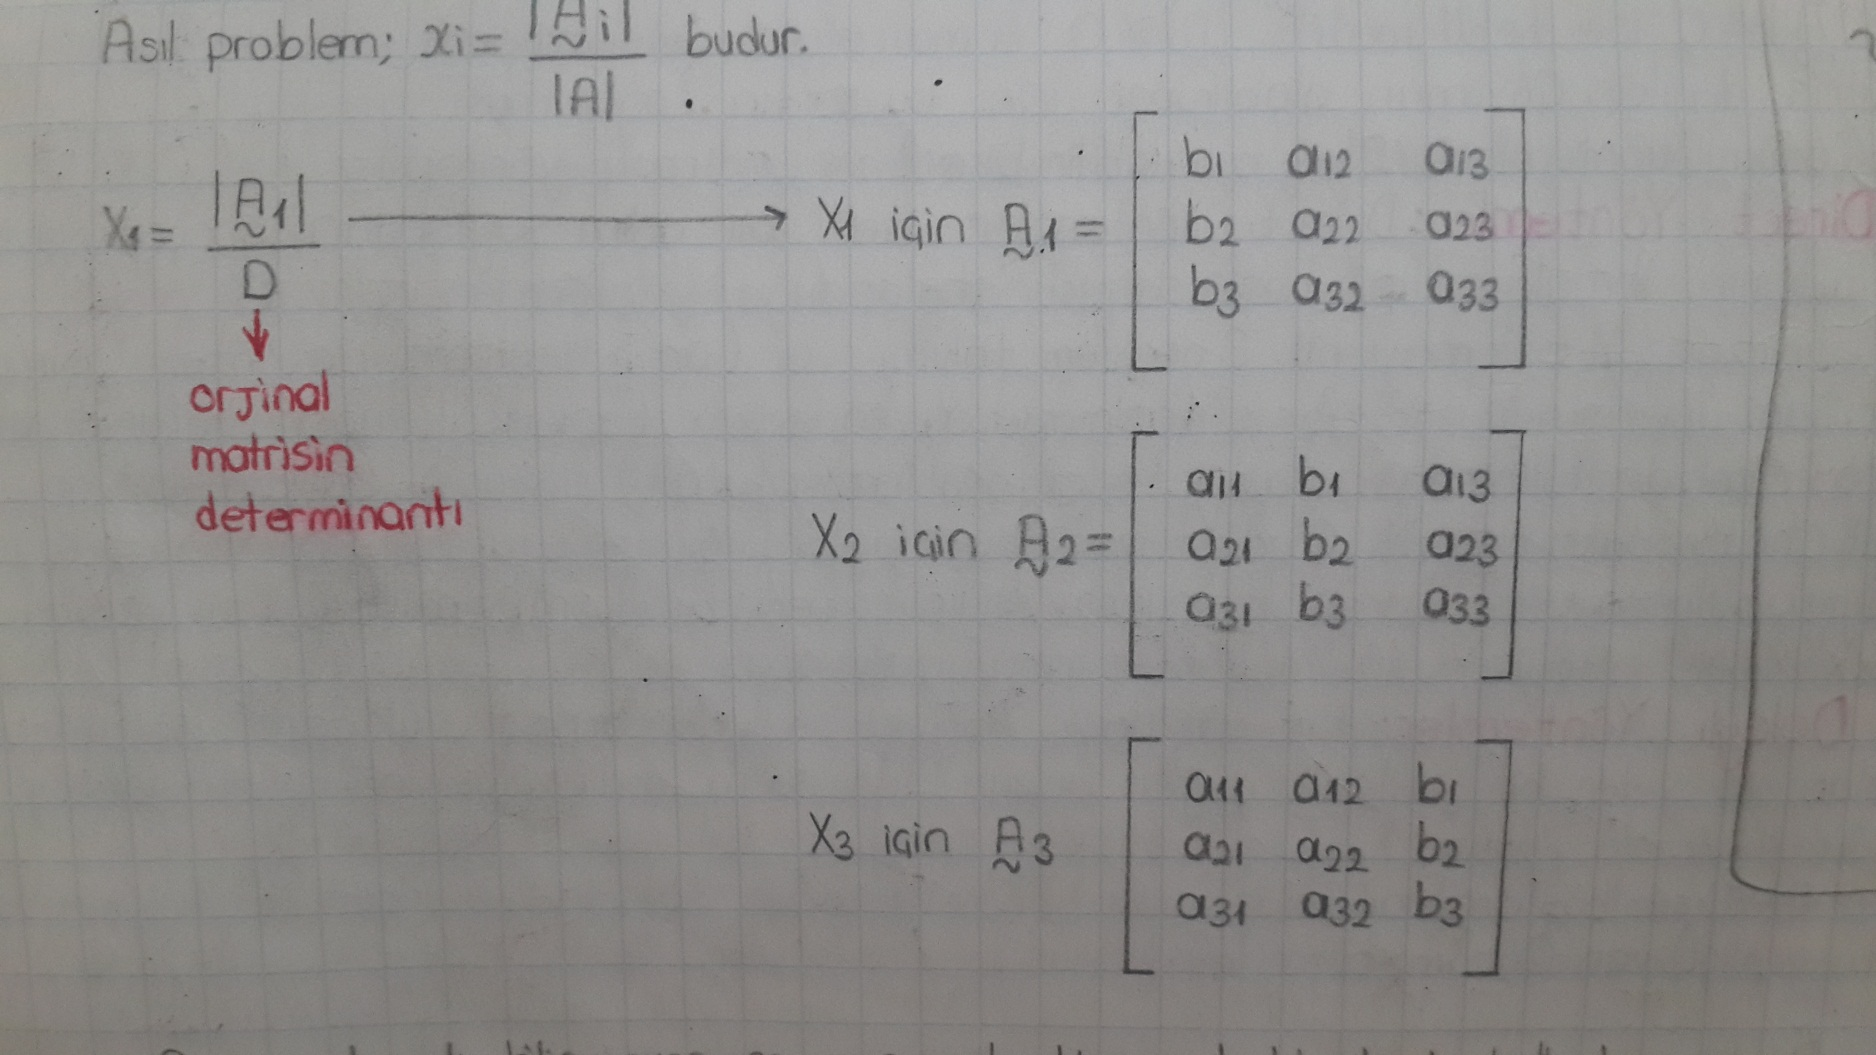 Asıl problem; xi = |A̰i| / |A| budur.
X1 = |A̰1| / D → X1 için A̰1 = [ b1 a12 a13
b2 a22 a23
b3 a32 a33 ]
orjinal
matrisin
determinantı
X2 için A̰2 = [ a11 b1 a13
a21 b2 a23
a31 b3 a33 ]
X3 için A̰3 [ a11 a12 b1
a21 a22 b2
a31 a32 b3 ]